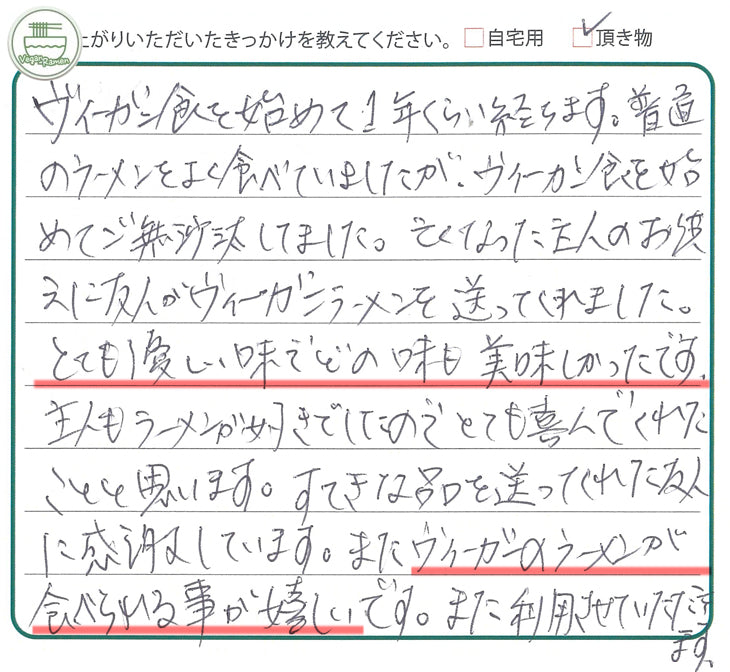 Vegan Ramen
上がりいただいたきっかけを教えてください。 □自宅用 ☑頂き物
ヴィーガン食を始めて1年くらい経ちます。普通
のラーメンをよく食べていましたが、ヴィーガン食を始
めてご無沙汰してました。亡くなった主人のお供
えに友人がヴィーガンラーメンを送ってくれました。
とても優しい味でどの味も美味しかったです。
主人もラーメンが好きでしたのでとても喜んでくれた
ことと思います。すてきな品を送ってくれた友人
に感謝しています。またヴィーガンのラーメンが
食べられる事が嬉しいです。また利用させていただき
ます。